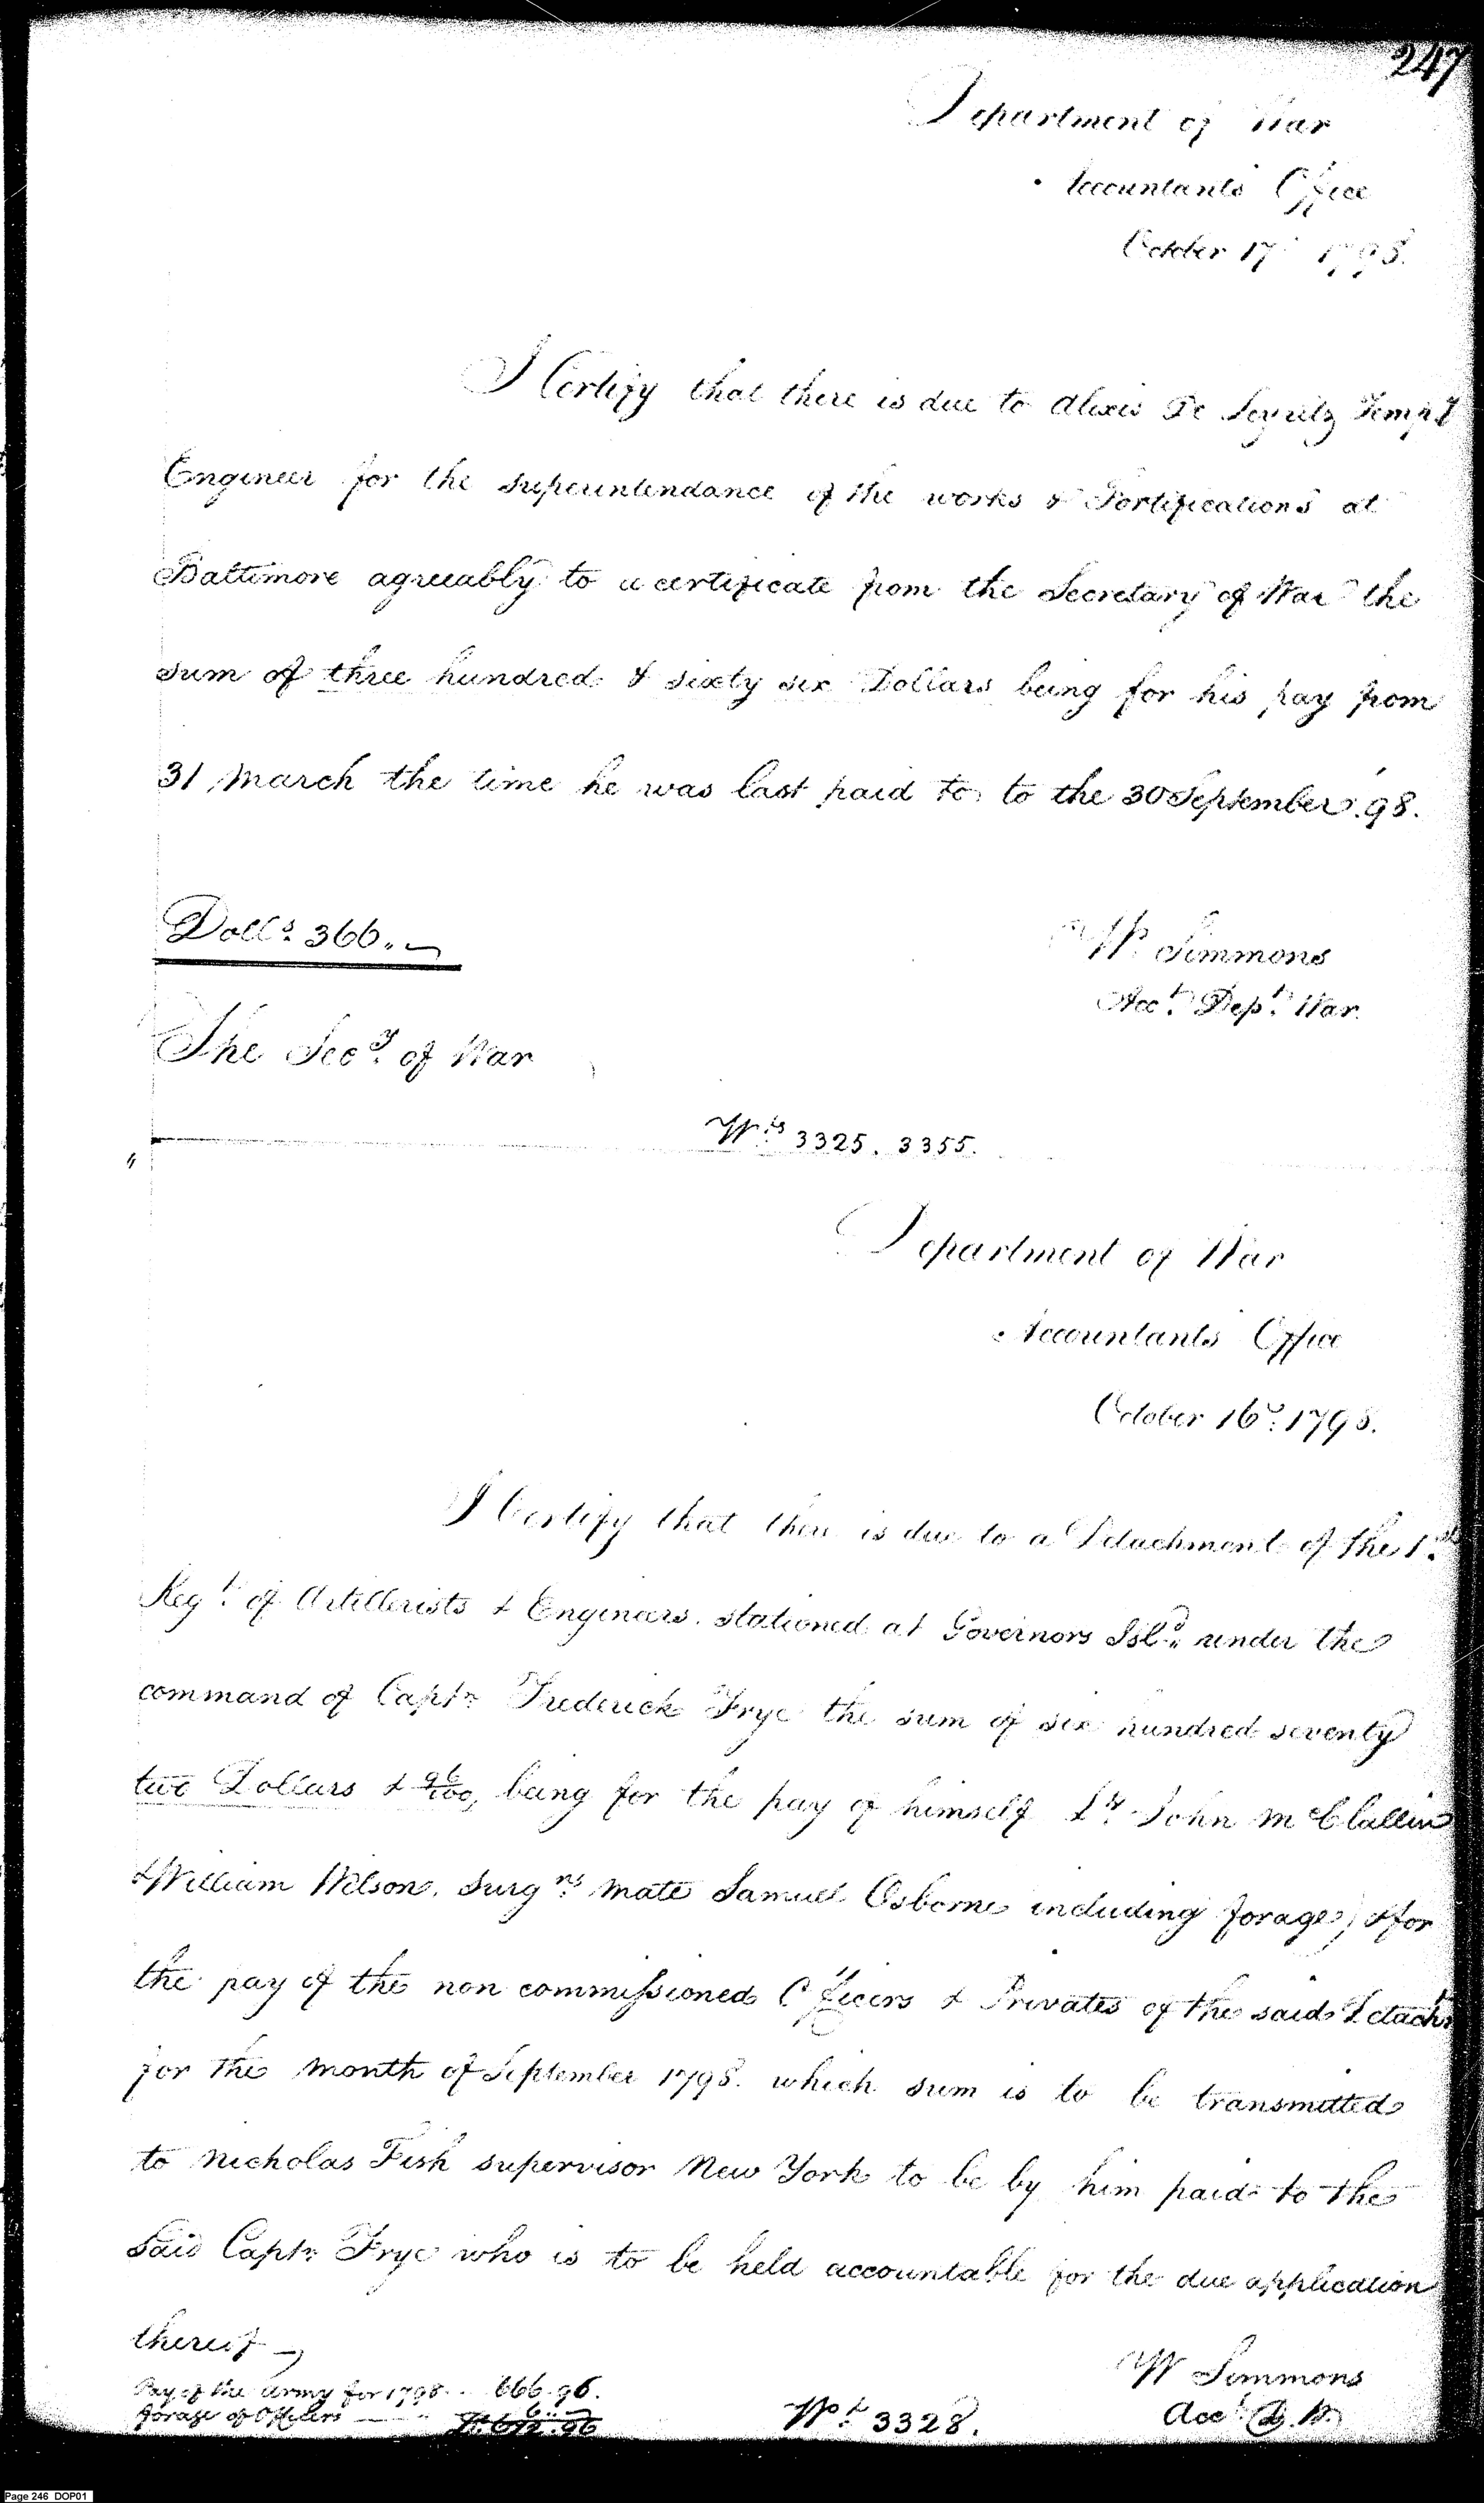 247
Department of War
Accountants Office
October 17th 1798.
I Certify that there is due to Alexis De Tempy
Engineer for the superintendance of the works & Fortifications at
Baltimore agreeably to a certificate from the Secretary of War the
sum of three hundred & sixty six Dollars being for his pay from
31 March the time he was last paid to, to the 30 September '98.
Dolls. 366..
Wm Simmons
Acct. Dept. War
The Secy. of War
Wts 3325. 3355.
Department of War
Accountants Office
October 16th: 1798.
I Certify that there is due to a Detachment of the 1st
Regt. of Artillerists & Engineers. stationed at Governors Isld. under the
command of Captn Frederick Frye the sum of six hundred seventy
two Dollars & 96/100, being for the pay of himself Lts. John McClallin
& William Wilson. Surgns. mate Samuel Osborne including forage, & for
the pay of the non commissioned Officers & Privates of the said Detacht
for the month of September 1798. which sum is to be transmitted
to Nicholas Fish supervisor New York to be by him paid to the
said Captn. Frye who is to be held accountable for the due application
thereof
W Simmons
Acct D. W.
Pay of the army for 1798 .. 666.96.
forage of Officers 6..
Ds. 672.96
Wt. 3328.
Page 246 DOP01